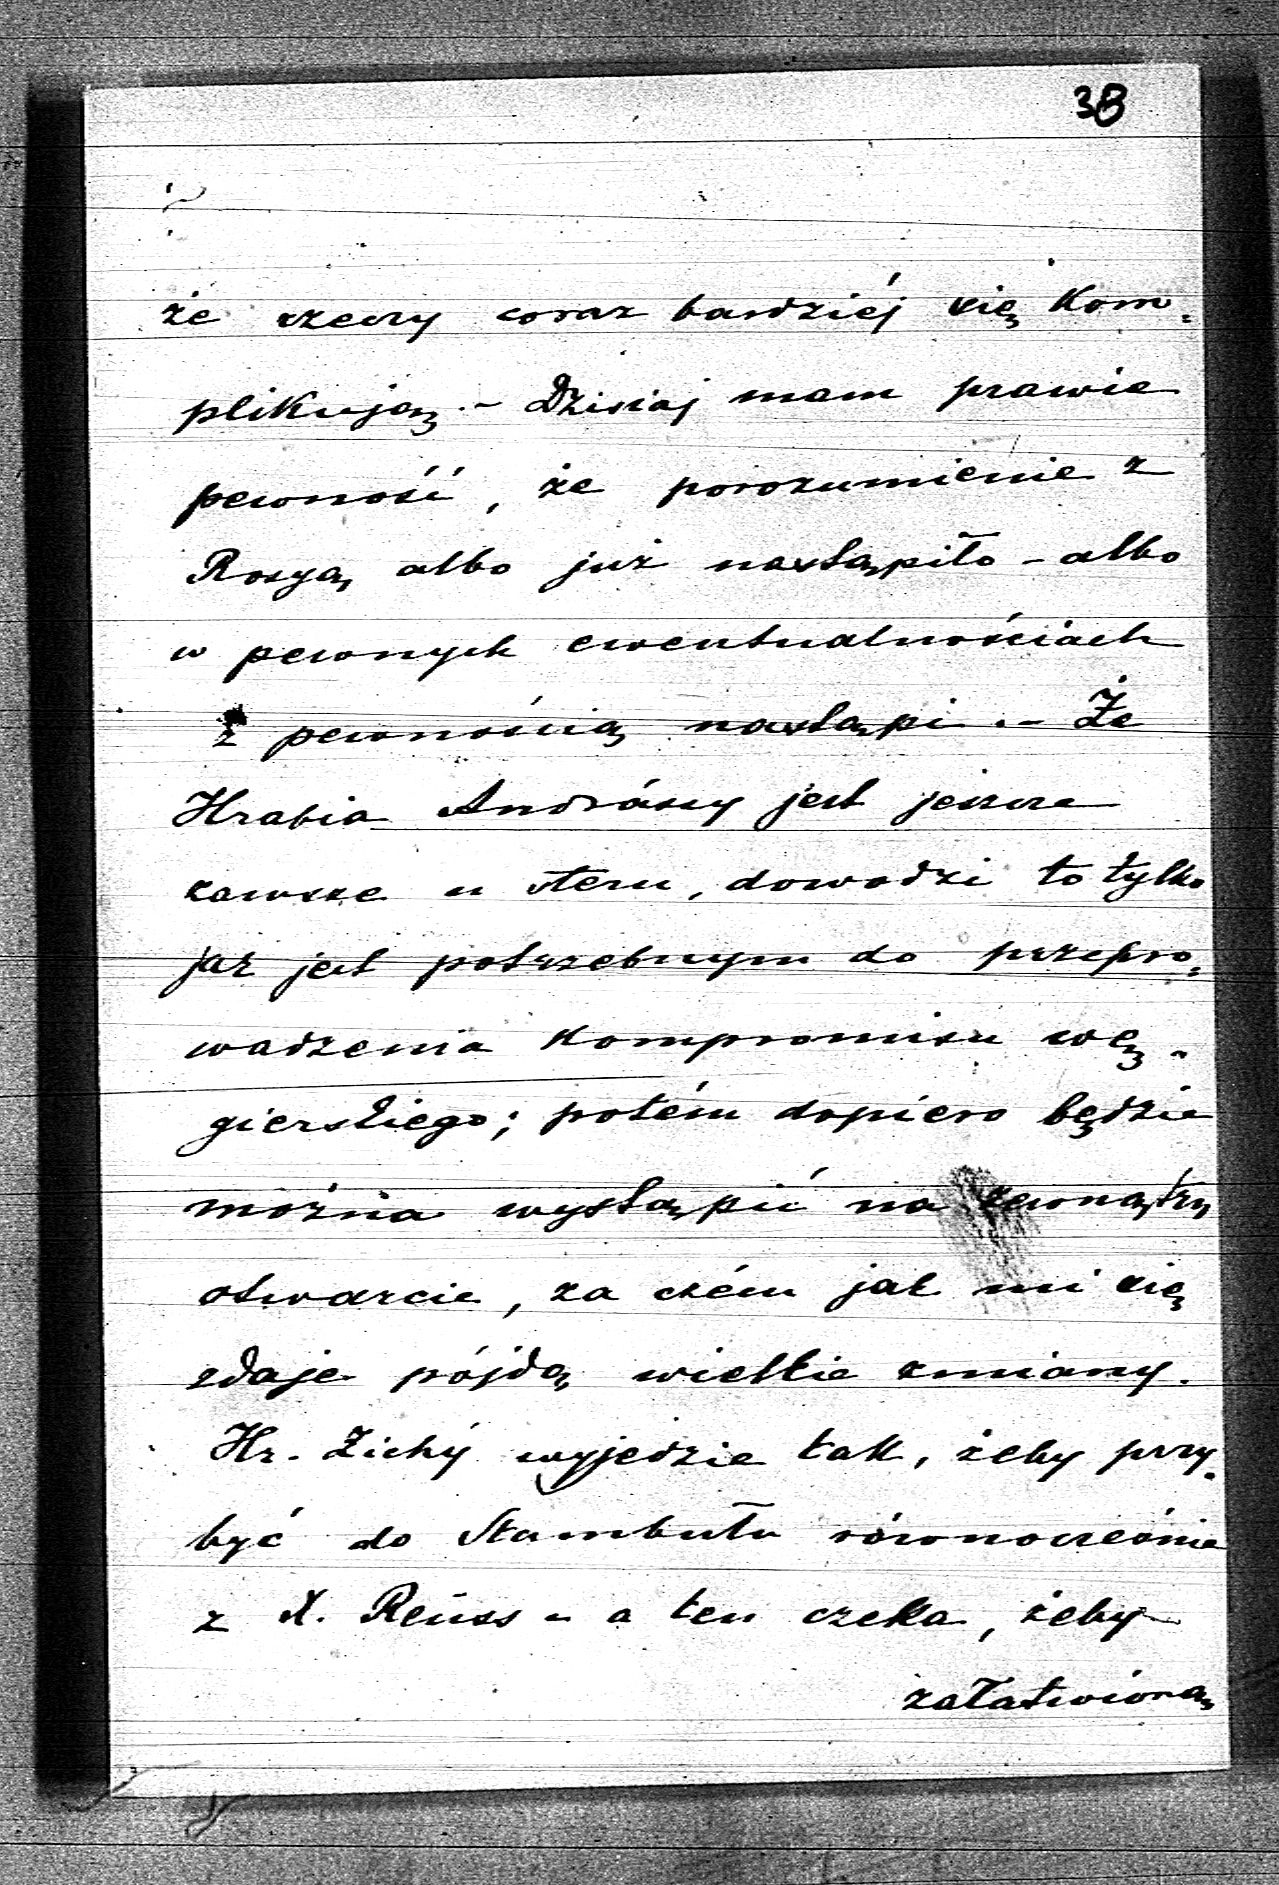 38
że rzeczy coraz bardziéj się kom=
plikują. - Dzisiaj mam prawie
pewność, że porozumienie z
Rosyą albo już nastąpiło - albo
w pewnych ewentualnościach
z pewnością nastąpi. - Że
Hrabia Andrássy jest jeszcze
zawsze u steru, dowodzi to tylko
jak jest potrzebnym do przepro=
wadzenia kompromisu wę-
gierskiego; potém dopiero będzie
można wystąpić na zewnątrz
otwarcie, za czém jak mi się
zdaje pójdą wielkie zmiany.
Hr. Zichý wyjedzie tak, żeby przy=
być do Stambułu równocześnie
z X. Reüss - a ten czeka, żeby
załatwioną